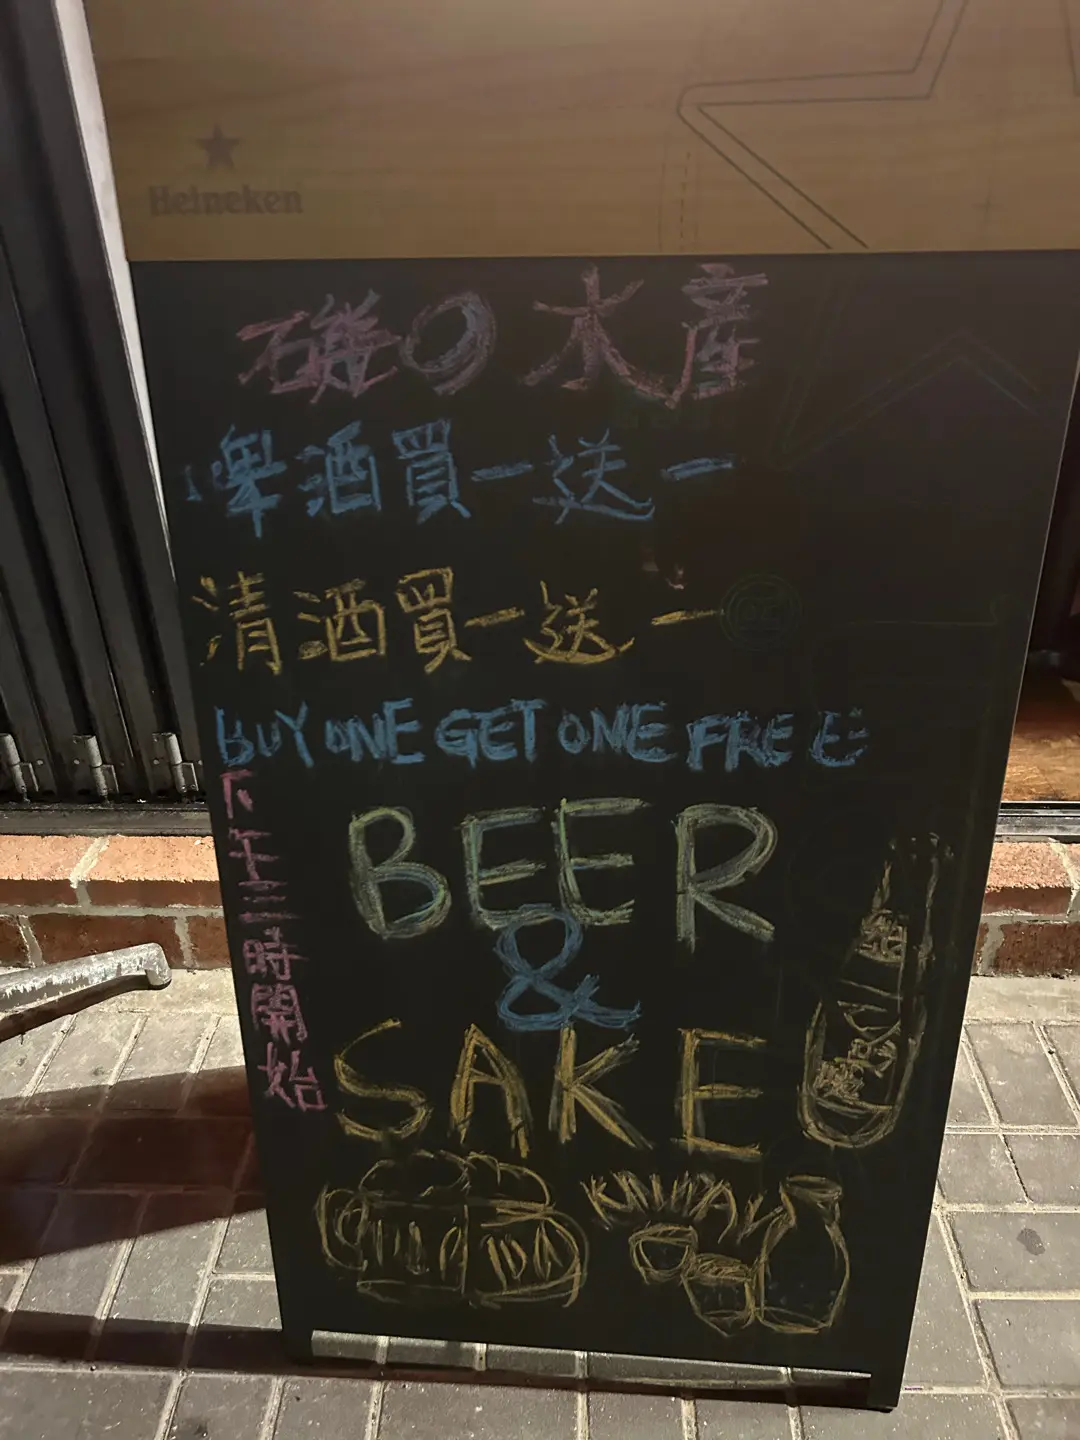 Heineken
磯の水産
啤酒買一送一
清酒買一送一
BUY ONE GET ONE FREE
下午三時開始
BEER
&
SAKE
KANPAI